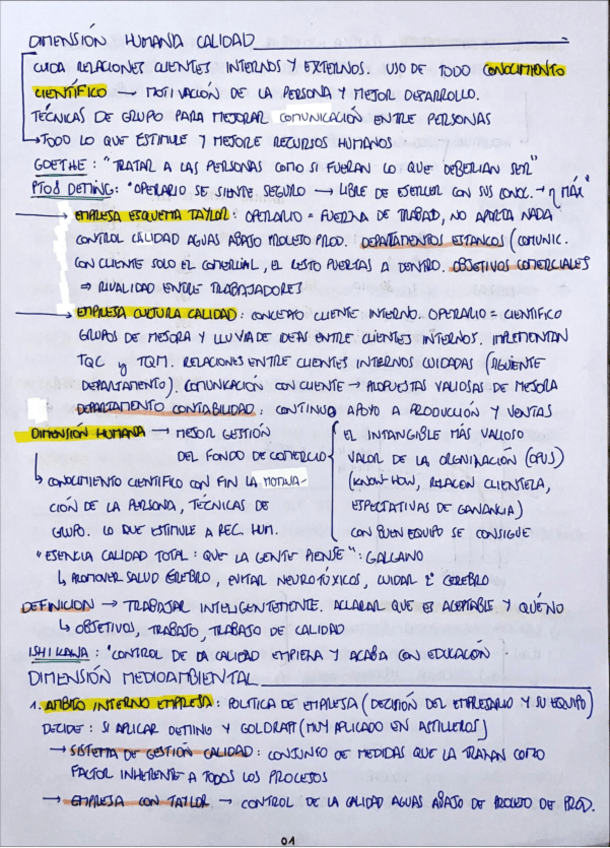 DIMENSIÓN HUMANA CALIDAD
CUIDA RELACIONES CLIENTES INTERNOS Y EXTERNOS. USO DE TODO CONOCIMIENTO
CIENTÍFICO → MOTIVACIÓN DE LA PERSONA Y MEJOR DESARROLLO.
TÉCNICAS DE GRUPO PARA MEJORAR COMUNICACIÓN ENTRE PERSONAS
→ TODO LO QUE ESTIMULE Y MEJORE RECURSOS HUMANOS
GOETHE: "TRATAR A LAS PERSONAS COMO SI FUERAN LO QUE DEBERÍAN SER"
PTO8 DEMING: "OPERARIO SE SIENTE SEGURO → LIBRE DE EJERCER CON SUS CONOC. → η MÁX"
→ EMPRESA ESQUEMA TAYLOR: OPERARIO = FUERZA DE TRABAJO, NO APORTA NADA
CONTROL CALIDAD AGUAS ABAJO PROCESO PROD. DEPARTAMENTOS ESTANCOS (COMUNIC.
CON CLIENTE SOLO EL COMERCIAL, EL RESTO PUERTAS A DENTRO. OBJETIVOS COMERCIALES
⇒ RIVALIDAD ENTRE TRABAJADORES
→ EMPRESA CULTURA CALIDAD: CONCEPTO CLIENTE INTERNO. OPERARIO = CIENTÍFICO
GRUPOS DE MEJORA Y LLUVIA DE IDEAS ENTRE CLIENTES INTERNOS. IMPLEMENTAN
TQC y TQM. RELACIONES ENTRE CLIENTES INTERNOS CUIDADAS (SIGUIENTE
DEPARTAMENTO). COMUNICACIÓN CON CLIENTE → PROPUESTAS VALIOSAS DE MEJORA
DEPARTAMENTO CONTABILIDAD: CONTINUO APOYO A PRODUCCIÓN Y VENTAS
DIMENSIÓN HUMANA → MEJOR GESTIÓN
DEL FONDO DE COMERCIO
EL INTANGIBLE MÁS VALIOSO
VALOR DE LA ORGNINACIÓN (OPUS)
(KNOW-HOW, RELACIÓN CLIENTELA,
ESPECTATIVAS DE GANANCIA)
CON BUEN EQUIPO SE CONSIGUE
↳ CONOCIMIENTO CIENTÍFICO CON FIN LA MOTIVA-
CIÓN DE LA PERSONA, TÉCNICAS DE
GRUPO. LO QUE ESTIMULE A REC. HUM.
"ESENCIA CALIDAD TOTAL: QUE LA GENTE PIENSE": GALGANO
↳ PROMOVER SALUD CEREBRO, EVITAR NEUROTÓXICOS, CUIDAR 2º CEREBRO
DEFINICION → TRABAJAR INTELIGENTEMENTE. ACLARAR QUE ES ACEPTABLE Y QUÉ NO
↳ OBJETIVOS, TRABAJO, TRABAJO DE CALIDAD
ISHIKAWA: "CONTROL DE LA CALIDAD EMPIEZA Y ACABA CON EDUCACION
DIMENSIÓN MEDIOAMBIENTAL
1. AMBITO INTERNO EMPRESA: POLITICA DE EMPRESA (DECISIÓN DEL EMPRESARIO Y SU EQUIPO)
DECIDE: SI APLICAR DEMING Y GOLDRATT (MUY APLICADO EN ASTILLEROS)
→ SISTEMA DE GESTIÓN CALIDAD: CONJUNTO DE MEDIDAS QUE LA TRATAN COMO
FACTOR INHERENTE A TODOS LOS PROCESOS
→ EMPRESA CON TAYLOR → CONTROL DE LA CALIDAD AGUAS ABAJO DE PROCESO DE PROD.
01